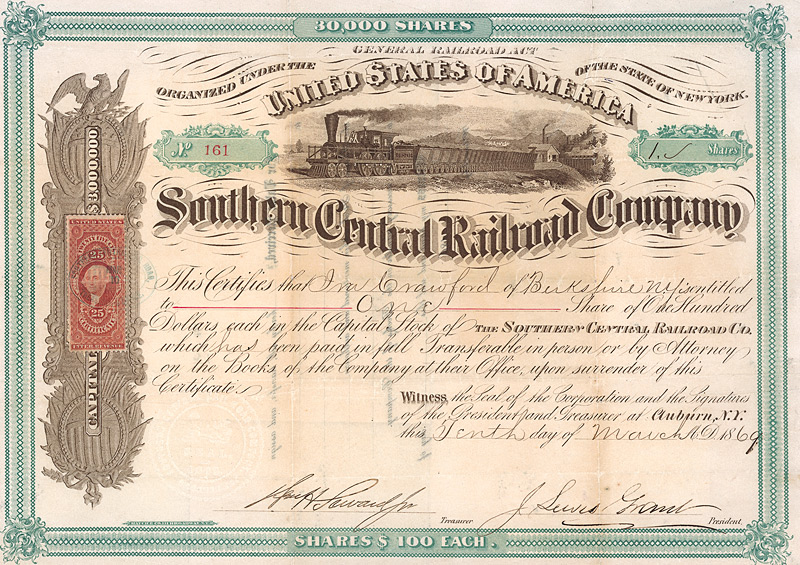 30,000 SHARES
GENERAL RAILROAD ACT
ORGANIZED UNDER THE
OF THE STATE OF NEW YORK.
UNITED STATES OF AMERICA
No 161
1 Shares
Southern Central Railroad Company
CAPITAL $3,000,000
UNITED STATES
25
25
CERTIFICATE
INTER. REVENUE
This Certifies that Ira Crawford of Berkshire NY is entitled
to One Share of One Hundred
Dollars each in the Capital Stock of THE SOUTHERN CENTRAL RAILROAD CO.
which has been paid in full Transferable in person or by Attorney
on the Books of the Company at their Office, upon surrender of this
Certificate.
Witness, the Seal of the Corporation and the Signatures
of the President and Treasurer at Auburn, N.Y.
this Tenth day of March A.D. 1869
Wm H Seward Jr Treasurer
J Lewis Grant President.
SHARES $ 100 EACH.